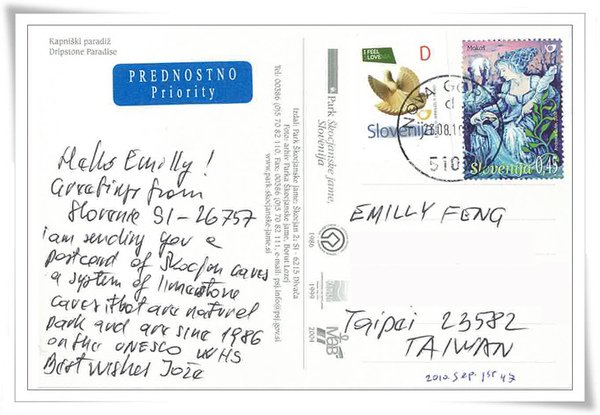 Kapniški paradiž
Dripstone Paradise
PREDNOSTNO
Priority
Hallo Emilly!
Greetings from
Slovenie SI-26757
i am sending you a
postcard of Skocjan caves
a system of limestone
caves that are naturel
park and are since 1986
on the UNESCO WHS
Best wishes Jože
Izdal: Park Škocjanske jame, Škocjan 2; SI - 6215 Divača
Foto: arhiv Parka Škocjanske jame, Borut Lozej
Tel: 00386 (0)5 70 82 110, Fax: 00386 (0)5 70 82 111, e-mail: psj.info@psj.gov.si
www.park-skocjanske-jame.si
Park Škocjanske jame,
Slovenija
1986
1999
MAB
2004
I FEEL
SLOVENIA
D
Slovenija
Mokoš
Slovenija 0,45
NOVA GO
510
EMILLY FENG
Taipei 23582
TAIWAN
2010 Sep. 1st 47